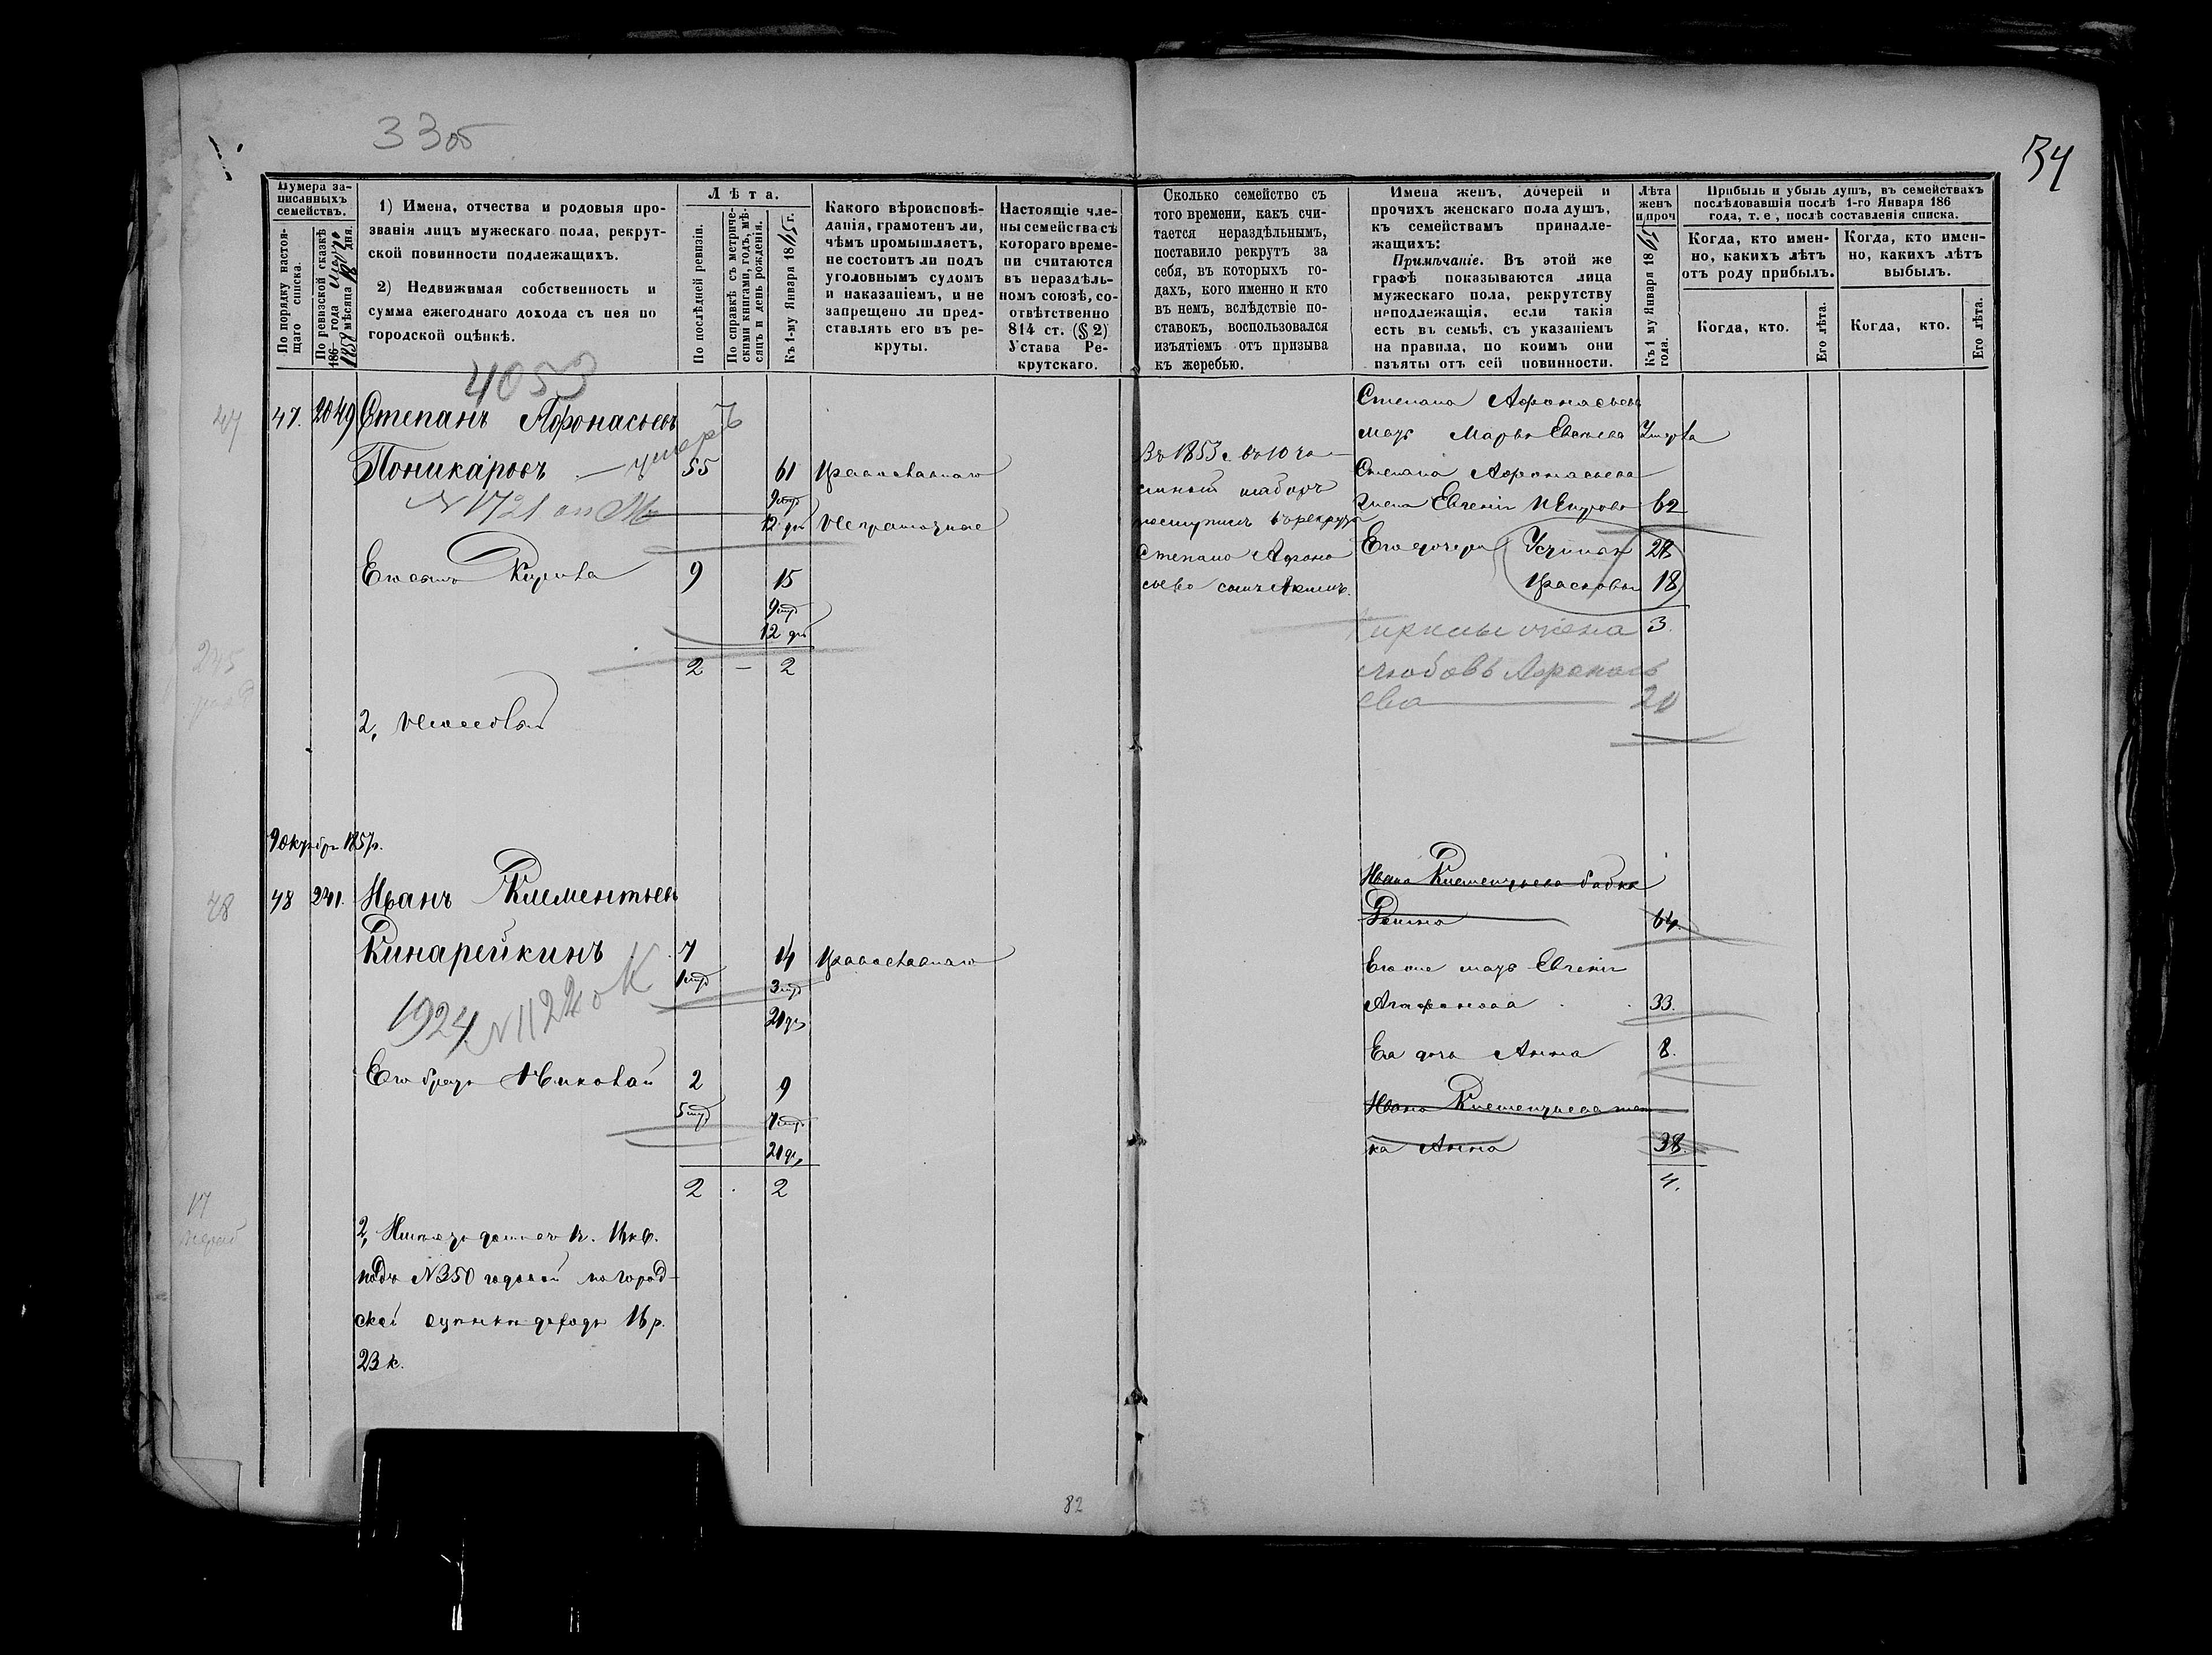 33об
34
Нумера за-
писанныхъ
семействъ.
По порядку настоя-
щаго списка.
По ревизской сказкѣ
186 года
1858 мѣсяца дня.
1) Имена, отчества и родовыя про-
званія лицъ мужескаго пола, рекрут-
ской повинности подлежащихъ.
2) Недвижимая собственность и
сумма ежегоднаго дохода съ нея по
городской оцѣнкѣ.
Лѣта.
По послѣдней ревизіи.
По справкѣ съ метриче-
скими книгами, годъ, мѣ-
сяцъ и день рожденія.
Къ 1-му Января 18 г.
Какого вѣроисповѣ-
данія, грамотенъ ли,
чѣмъ промышляетъ,
не состоитъ ли подъ
уголовнымъ судомъ
и наказаніемъ, и не
запрещено ли пред-
ставлять его въ ре-
круты.
Настоящіе чле-
ны семейства съ
котораго време-
ни считаются
въ нераздѣль-
номъ союзѣ, со-
отвѣтственно
814 ст. (§ 2)
Устава Ре-
крутскаго.
Сколько семейство съ
того времени, какъ счи-
тается нераздѣльнымъ,
поставило рекрутъ за
себя, въ которыхъ го-
дахъ, кого именно и кто
въ немъ, вслѣдствіе по-
ставокъ, воспользовался
изъятіемъ отъ призыва
къ жеребью.
Имена женъ, дочерей и
прочихъ женскаго пола душъ,
къ семействамъ принадле-
жащихъ:
Примѣчаніе. Въ этой же
графѣ показываются лица
мужескаго пола, рекрутству
неподлежащія, если такія
есть въ семьѣ, съ указаніемъ
на правила, по коимъ они
изъяты отъ сей повинности.
Лѣта
женъ
и проч
Къ 1 му Января 18
года.
Прибыль и убыль душъ, въ семействахъ
послѣдовавшія послѣ 1-го Января 186
года, т. е, послѣ составленія списка.
Когда, кто имен-
но, какихъ лѣтъ
отъ роду прибылъ.
Когда, кто имен-
но, какихъ лѣтъ
выбылъ.
Когда, кто.
Его лѣта.
Когда, кто.
Его лѣта.
4053
47
47. 2049 Степанъ Афонасьевъ
Поникаровъ — умеръ 55 61 Православнаго
9 мѣс
N 1721
12 дн неграмотные
Его сынъ Кирила 9 15
9 мѣс
12 дн
2 — 2
245
2, неимеетъ
Въ 1853 г. въ 10 ча-
стный наборъ
поступилъ въ рекруты
Степана Афона
сьева сынъ Акимъ.
Степана Афонасьева
мать Марья Умерла
Степана Афонасьева
жена Евгенія Петрова 62
Его дочери Устинья 28
Прасковья 18
3.
Кирилы жена
Любовь Афонась
ева 20
9 Октября 1857 г.
48
48 241. Иванъ Климентьевъ
Кинарейкинъ 7 14 Православнаго
1 мѣс 3 мѣс
20 дн
1924 N 1122
Его братъ Николай 2 9
5 мѣс 7 мѣс
20 дн
2 . 2
17
2, Имѣетъ домъ въ 1 кв.
подъ N 350 годовой по город-
ской оценкѣ доходъ 16 р.
23 к.
Ивана Климентьева бабка
64.
Его же мать Евгенія
Агафонова 33.
Ея дочь Анна 8.
Ивана Климентьева тет
ка Анна 38.
4.
82